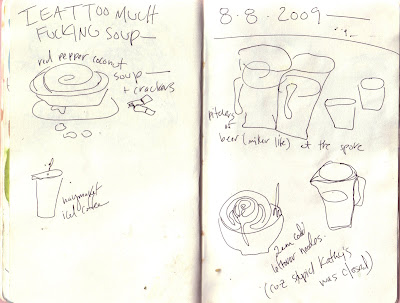 I EAT TOO MUCH
FUCKING SOUP—
red pepper coconut
soup—
+ crackers
haymarket
iced coffee
8.8.2009—
pitchers
of
beer (miller lite) at the spoke
2am cold
leftover noodles.
(coz stupid Kathy's
was closed)